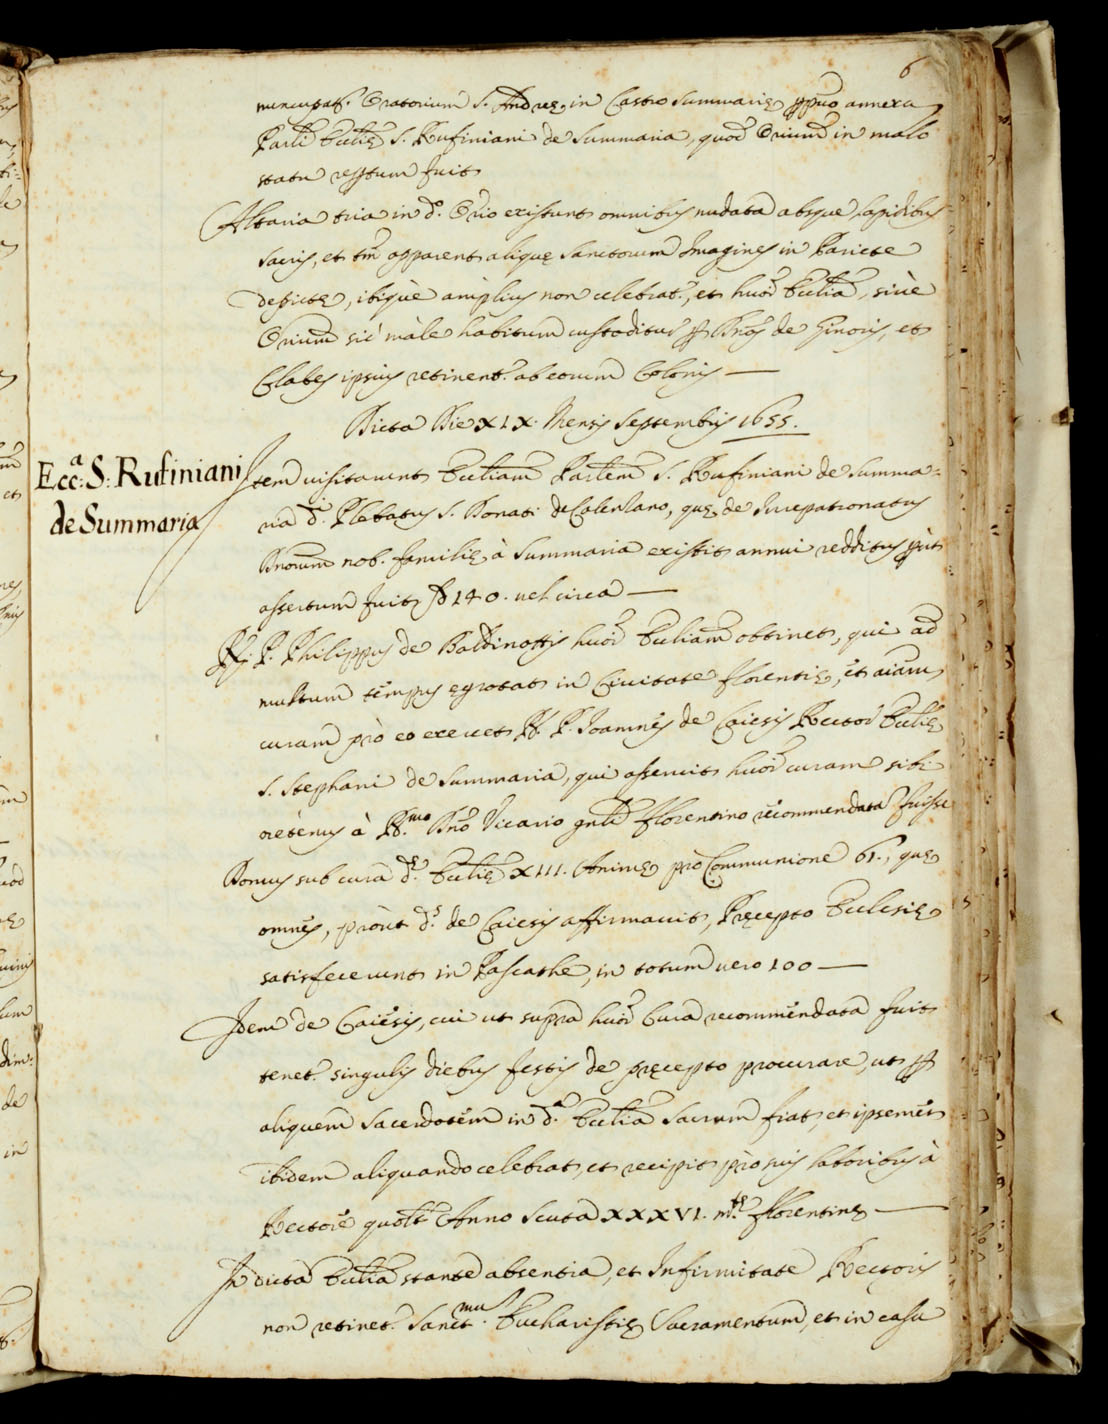 6
nuncupat. Oratorium S. Andreę in Castro Summarię ppuo annexu
Parli Ecclię S. Rufiniani de Summaria, quod Orium in malo
statu reptum fuit
Altaria tria in d.º Orio existunt omnibus nudata absque lapidibus
sacris, et tm apparent alique Sanctorum Imagines in Pariete
depictę, ibique amplius non celebrat., et huoi Eccliã, sivè
Orium sic màle habitum custoditur p Dnos de Ginoris, et
Claves ipsius retinent. ab eorum Colonis —
Dicta Die XIX. Mensis Septembris 1655.
Ecc.ª S. Rufiniani
de Summaria
Item visitavunt Eccliam Parlem S. Rufiniani de Summa-
ria d.i Plebatus S. Donati de Calenzano, quę de Jurepatronatus
Dnorum nob. familię à Summaria existit annui redditus put
assertum fuit 140. vel circa —
R. P. Philippus de Baldinottis huoi Eccliam obtinet, qui ad
multum tempus ęgrotat in Civitate Florentię, et aiãm
curam prò eo exercet R. P. Joannes de Caiesis Rector Ecclię
S. Stephani de Summaria, qui asseruit huoi curam sibi
oretenus à R.mo Dno Vicario gnli Florentino recommendata fuisse
Domus sub cura d.ę Ecclię XIII. Animę prò Communione 61., quę
omnes, prout d.s de Caiesis affirmavit, Pręcepto Ecclesię
satisfecerunt in Pascathe, in totum vero 100 —
Idem de Caiesis, cui ut supra huoi Cura recommendata fuit
tenet. singulis diebus festis de pręcepto procurare, ut p
aliquem Sacerdotem in d.ª Ecclia Sacrum fiat, et ipsemet
ibidem aliquando celebrat, et recipit prò suis laboribus à
Rectore quolt Anno Scuta XXXVI. m.tę Florentinę —
In dicta Ecclia stante absentia, et Infirmitate Rectoris
non retinet. Sanct.mu Eucharistię Sacramentum, et in casu